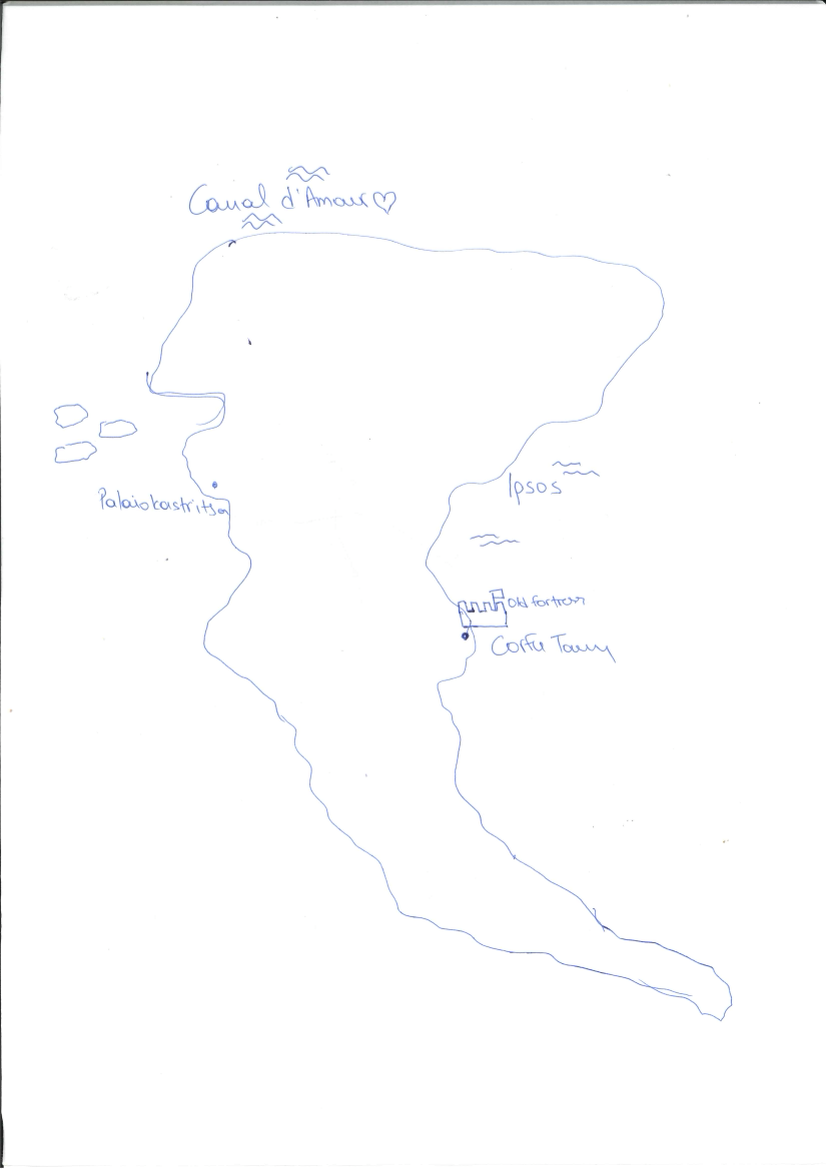 Canal d'Amour♡
Ipsos
Palaiokastritsa
Old fortress
Corfu Town